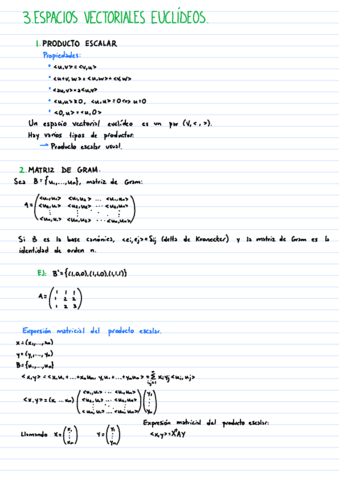 3. ESPACIOS VECTORIALES EUCLÍDEOS.
1. PRODUCTO ESCALAR
Propiedades:
• <u,v> = <v,u>
• <u+v,w> = <u,w> + <v,w>
• <au,v> = a<u,v>
• <u,u> ≥ 0, <u,u> = 0 ⇔ u = 0
• <0,u> = <u,0>
Un espacio vectorial euclídeo es un par (V,< , >).
Hay varios tipos de productor.
→ Producto escalar usual.
2. MATRIZ DE GRAM.
Sea B = {u₁,...,uₙ}, matriz de Gram:
A = (<u₁,u₁> <u₁,u₂> ... <u₁,uₙ>
<u₂,u₁> <u₂,u₂> ... <u₂,uₙ>
⋮ ⋮ ⋱ ⋮
<uₙ,u₁> <uₙ,u₂> ... <uₙ,uₙ>)
Si B es la base canónica, <eᵢ,eⱼ> = δᵢⱼ (delta de Kronecker) y la matriz de Gram es la
identidad de orden n.
EJ: B' = {(1,0,0),(1,1,0),(1,1,1)}
A = (1 1 1
1 2 2
1 2 3)
Expresión matricial del producto escalar.
x = (x₁,...,xₙ)
y = (y₁,...,yₙ)
B = {u₁,...,uₙ}
<x,y> = <x₁u₁ + ... + xₙuₙ, y₁u₁ + ... + yₙuₙ> = Σ xᵢyⱼ <uᵢ,uⱼ>
<x,y> = (x₁ ... xₙ) (<u₁,u₁> ... <u₁,uₙ>
<u₂,u₁> ... <u₂,uₙ>
⋮ ⋱ ⋮
<uₙ,u₁> ... <uₙ,uₙ>) (y₁ ⋮ yₙ)
Expresión matricial del producto escalar:
Llamando X = (x₁ ⋮ xₙ) Y = (y₁ ⋮ yₙ) <x,y> = XᵗAY